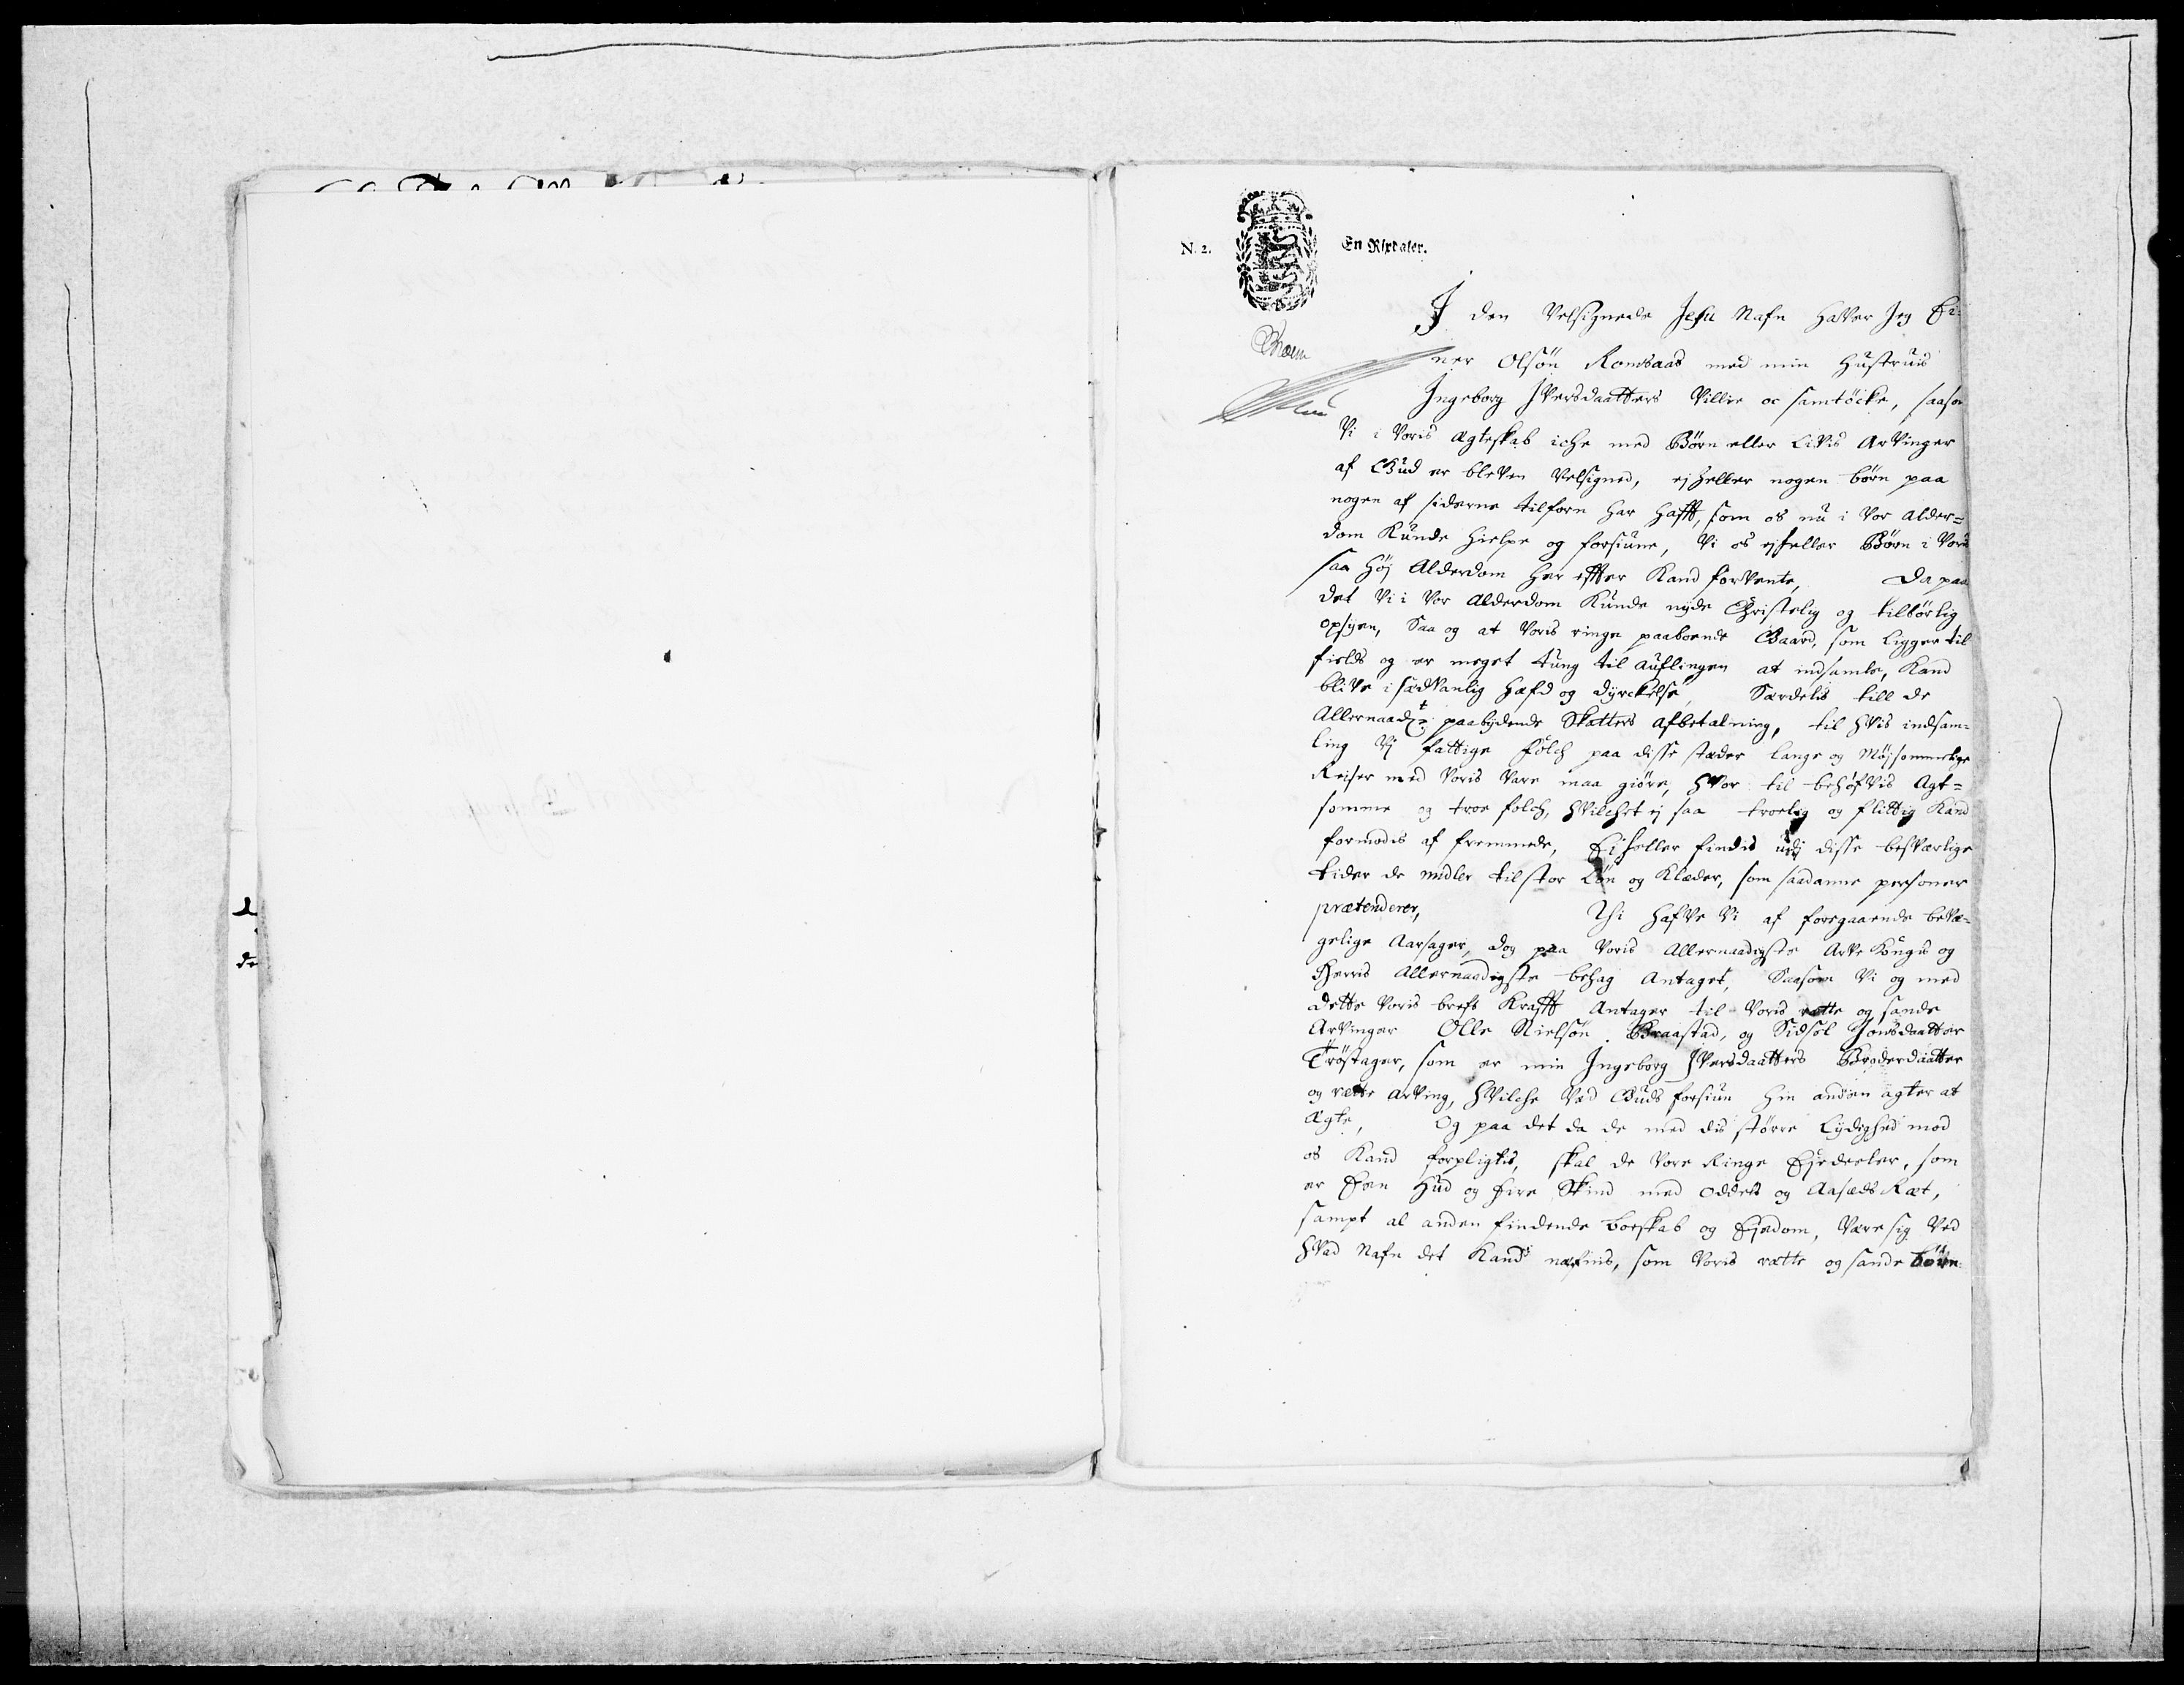 N. 2. En Rixdaler.
I den Velsignede Jesu Nafn haver Jeg Ei-
ner Olsøn Romsaas med min Hustruis
Ingeborg Iversdaatters Villie oc samtöcke, saasom
Vi i Voris Ægteskab iche med Börn eller Livis Arvinger
af Gud er bleven Velsigned, ej heller nogen börn paa
nogen af siderne tilforn har hafft, som os nu i Vor alder=
dom Kunde hielpe og forsiune, Vi os ej heller Börn i Voris
saa høj Alderdom her effter Kand forvente, Da paa
det Vi i Vor Alderdom Kunde nyde Christelig og tilbörlig
opsyen, Saa og at Voris ringe paaboende Gaard, som ligger til
fields og er meget tung til auflingen at indsamle, Kand
blive i sædvanlig hæfd og dyrckelse, Særdelis till de
Allernaadt: paabydende Skatters afbetalning, til hvis indsam-
ling Vj fattige folch paa disse stæder lange og Möjsommelige
Reiser med Voris Vare maa giöre, hvor til behöfvis Agt=
somme og troe folch, hvilchet ej saa troelig og flittig Kand
formodis af fremmede, Ei heller findis udj disse besværlige
tider de midler til stor Lön og Klæder, som saadanne personer
prætenderer, Thi hafve Vi af foregaaende bevæ-
gelige Aarsager, dog paa Voris Allernaadigste Arve Kongis og
Herris Allernaadigste behag Antaget, Saasom Vi og med
dette Voris brefs Krafft Antager til Voris rette og sande
Arvinger Olle Nielsøn Braastad, og Sidsel Jonsdaatter
Tröstager, som er min Ingeborg Iversdaatters Broderdaatter
og rætte Arving, hvilche Ved Guds forsiun hin anden agter at
ægte, Og paa det da de med dis större Lydighed mod
os Kand forpligtis, skal de Vore Ringe Ejedeeler, som
er Een Hud og fire Skind med Oddels og Aasæds Ræt,
sampt al anden findende boeskab og Ejedom, Være sig Ved
hvad Nafn det Kand næfnis, som Voris rætte og sande börn